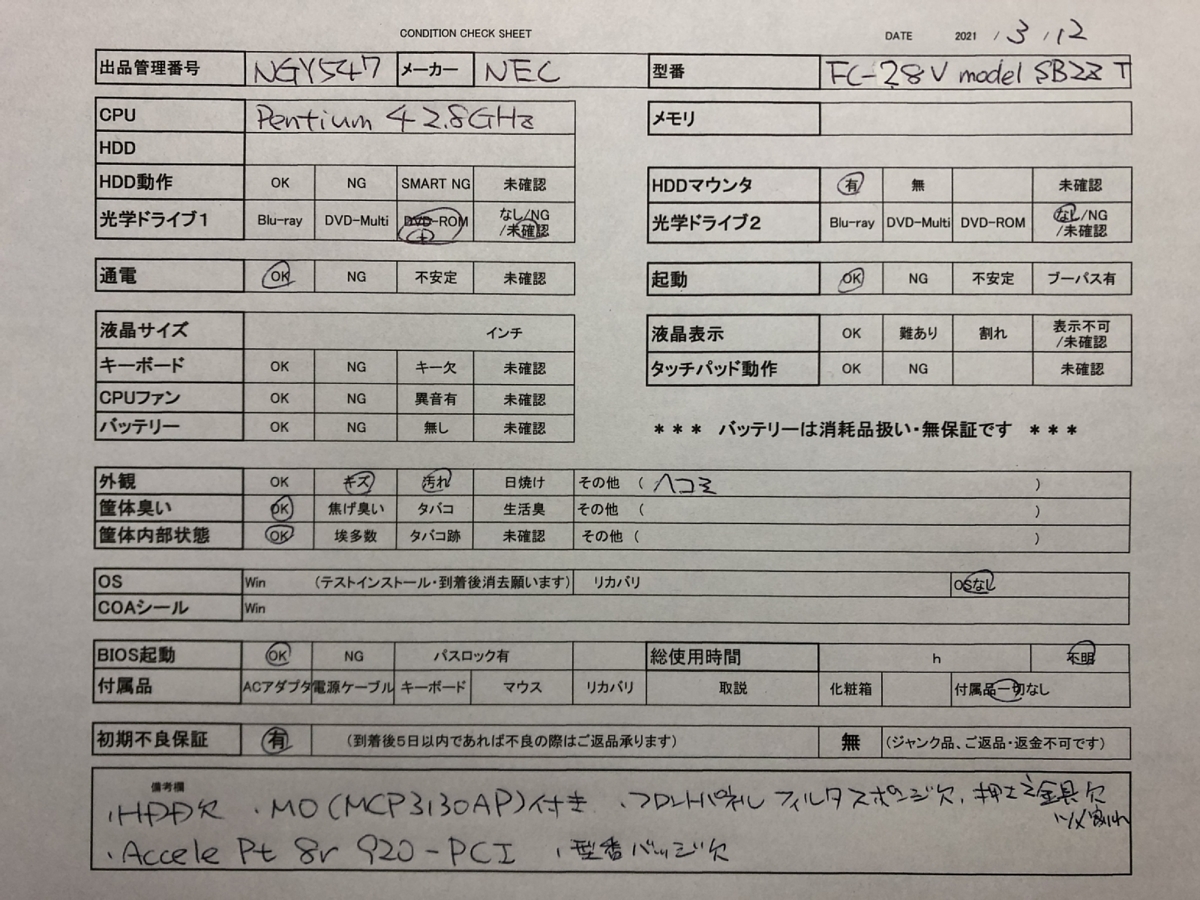 CONDITION CHECK SHEET
DATE 2021 / 3 / 12
出品管理番号 NGY547 メーカー NEC 型番 FC-28V model SB2Z T
CPU Pentium 4 2.8GHz メモリ
HDD
HDD動作 OK NG SMART NG 未確認 HDDマウンタ 有 無 未確認
光学ドライブ1 Blu-ray DVD-Multi DVD-ROM なし/NG /未確認 光学ドライブ2 Blu-ray DVD-Multi DVD-ROM なし/NG /未確認
通電 OK NG 不安定 未確認 起動 OK NG 不安定 ブーパス有
液晶サイズ インチ 液晶表示 OK 難あり 割れ 表示不可 /未確認
キーボード OK NG キー欠 未確認 タッチパッド動作 OK NG 未確認
CPUファン OK NG 異音有 未確認
バッテリー OK NG 無し 未確認 *** バッテリーは消耗品扱い・無保証です ***
外観 OK キズ 汚れ 日焼け その他 ( ヘコミ )
筐体臭い OK 焦げ臭い タバコ 生活臭 その他 ( )
筐体内部状態 OK 埃多数 タバコ跡 未確認 その他 ( )
OS Win (テストインストール・到着後消去願います) リカバリ OSなし
COAシール Win
BIOS起動 OK NG パスロック有 総使用時間 h 不明
付属品 ACアダプタ 電源ケーブル キーボード マウス リカバリ 取説 化粧箱 付属品一切なし
初期不良保証 有 (到着後5日以内であれば不良の際はご返品承ります) 無 (ジャンク品、ご返品・返金不可です)
備考欄
・HDD欠 ・MO(MCP3130AP)付き ・フロントパネル フィルタスポンジ欠、押さえ金具欠
ツメ割れ
・Accele Pt 8r 920-PCI ・型番バッジ欠